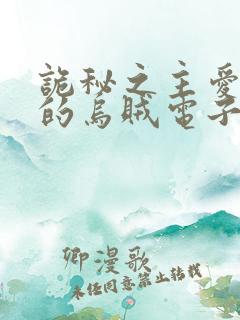 詭秘之主愛
的烏賊電子
卿漫歌
未经同意禁止转载